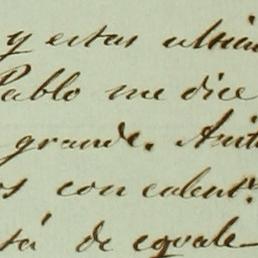 y estas ultim
Pablo me dice
grande. Anit
os con calent.
stá de equale